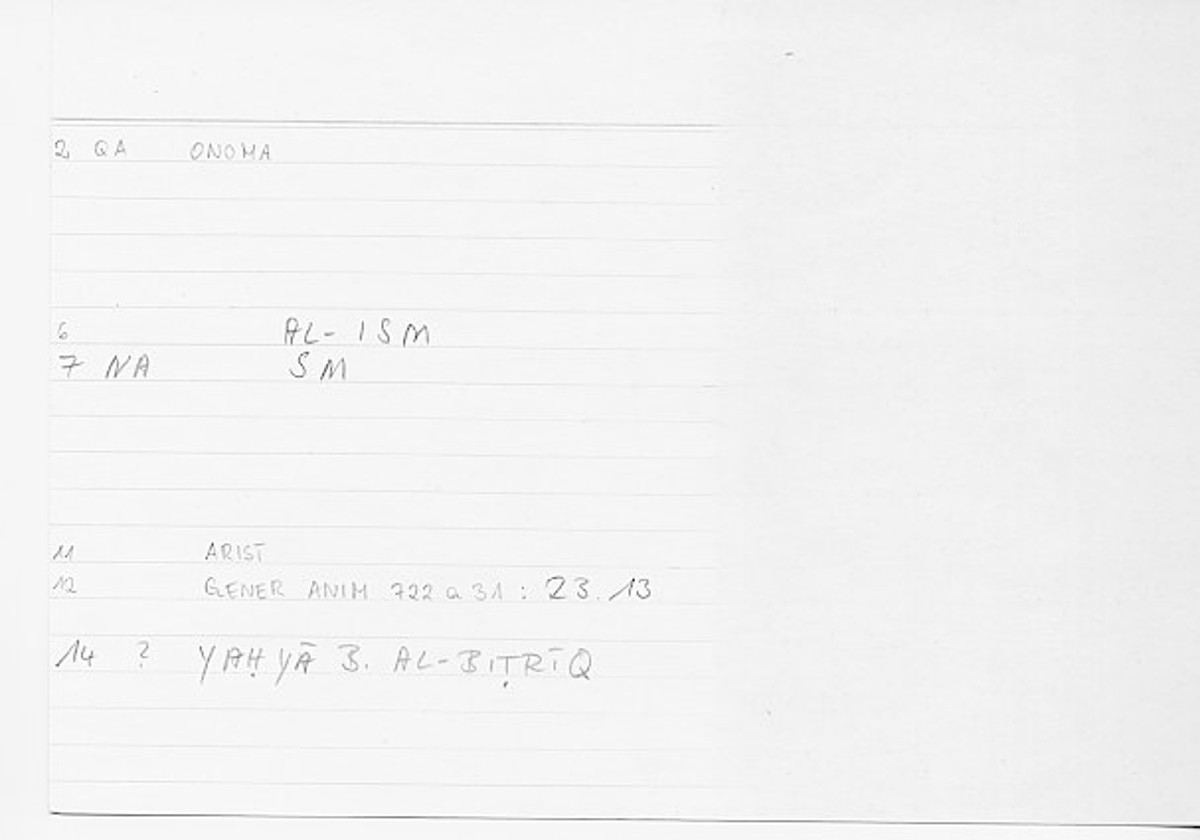 2 QA ONOMA
6 AL-ISM
7 NA SM
11 ARIST
12 GENER ANIM 722 a 31 : 23.13
14 ? YAḤYĀ B. AL-BIṬRĪQ